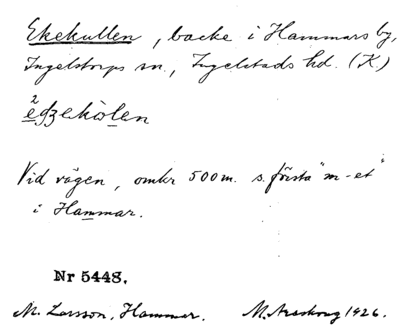 Ekekullen, backe i Hammars by,
Ingelstorps sn., Ingelstads hd. (K.)
2
Vid vägen, omkr 500 m. s. första "m-et"
i Hammar.
Nr 5448.
M. Larsson, Hammar. 1926.